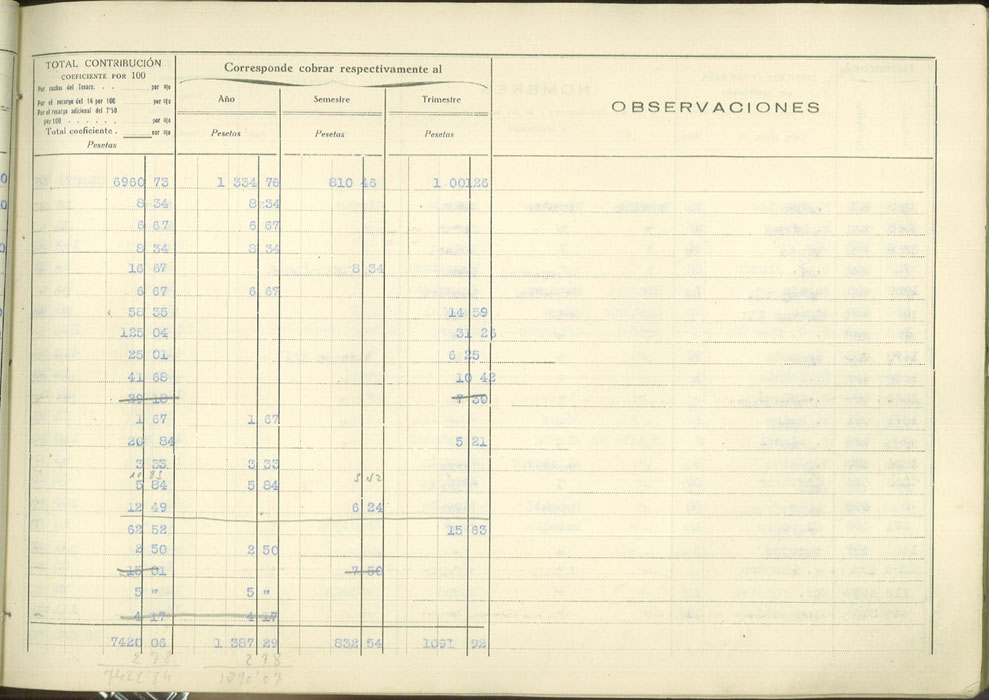 TOTAL CONTRIBUCIÓN
COEFICIENTE POR 100
Por cuotas del Tesoro. . . por 0/0
Por el recargo del 16 por 100 por 0/0
Por el recargo adicional del 7'50
por 100 . . . . . . por 0/0
Total coeficiente . por 0/0
Pesetas
Corresponde cobrar respectivamente al
Año Semestre Trimestre
Pesetas Pesetas Pesetas
OBSERVACIONES
6960 73 1 334 76 810 46 1 001 26
8 34 8 34
6 67 6 67
8 34 8 34
16 67 8 34
6 67 6 67
58 35 14 59
125 04 31 26
25 01 6 25
41 68 10 42
29 18 7 30
1 67 1 67
20 84 5 21
3 33 3 33
5 84 5 84
12 49 6 24
62 52 15 63
2 50 2 50
15 01 7 50
5 " 5 "
4 17 4 17
7420 06 1 387 29 832 54 1091 92
2 78 2 78
7422'84 1390'07